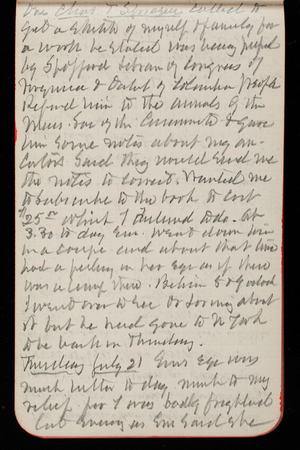 One Chas T Sprague called to
get a sketch of myself & family for
a work he stated was being prepared
by Spofford Librarian of Congress of
Virginia & District of Columbia people
Referred him to the annals of the
Mass. Soc of the Cincinnati & gave
him some notes about my an-
cestors Said they would send me
the notes to correct. Wanted me
to subscribe to the book to cost
$25 00 which I declined to do. At
3.30 to day Em. went down town
in a coupe and about that time
had a feeling in her eye as if there
was a there. Between 5 & 6 o'clock
I went over to see Dr Loring about
it but he had gone to N York
to be back on Thursday.
Thursday July 21 Ems Eye was
much better to day much to my
relief for I was badly frightened
last Evening as Em said she